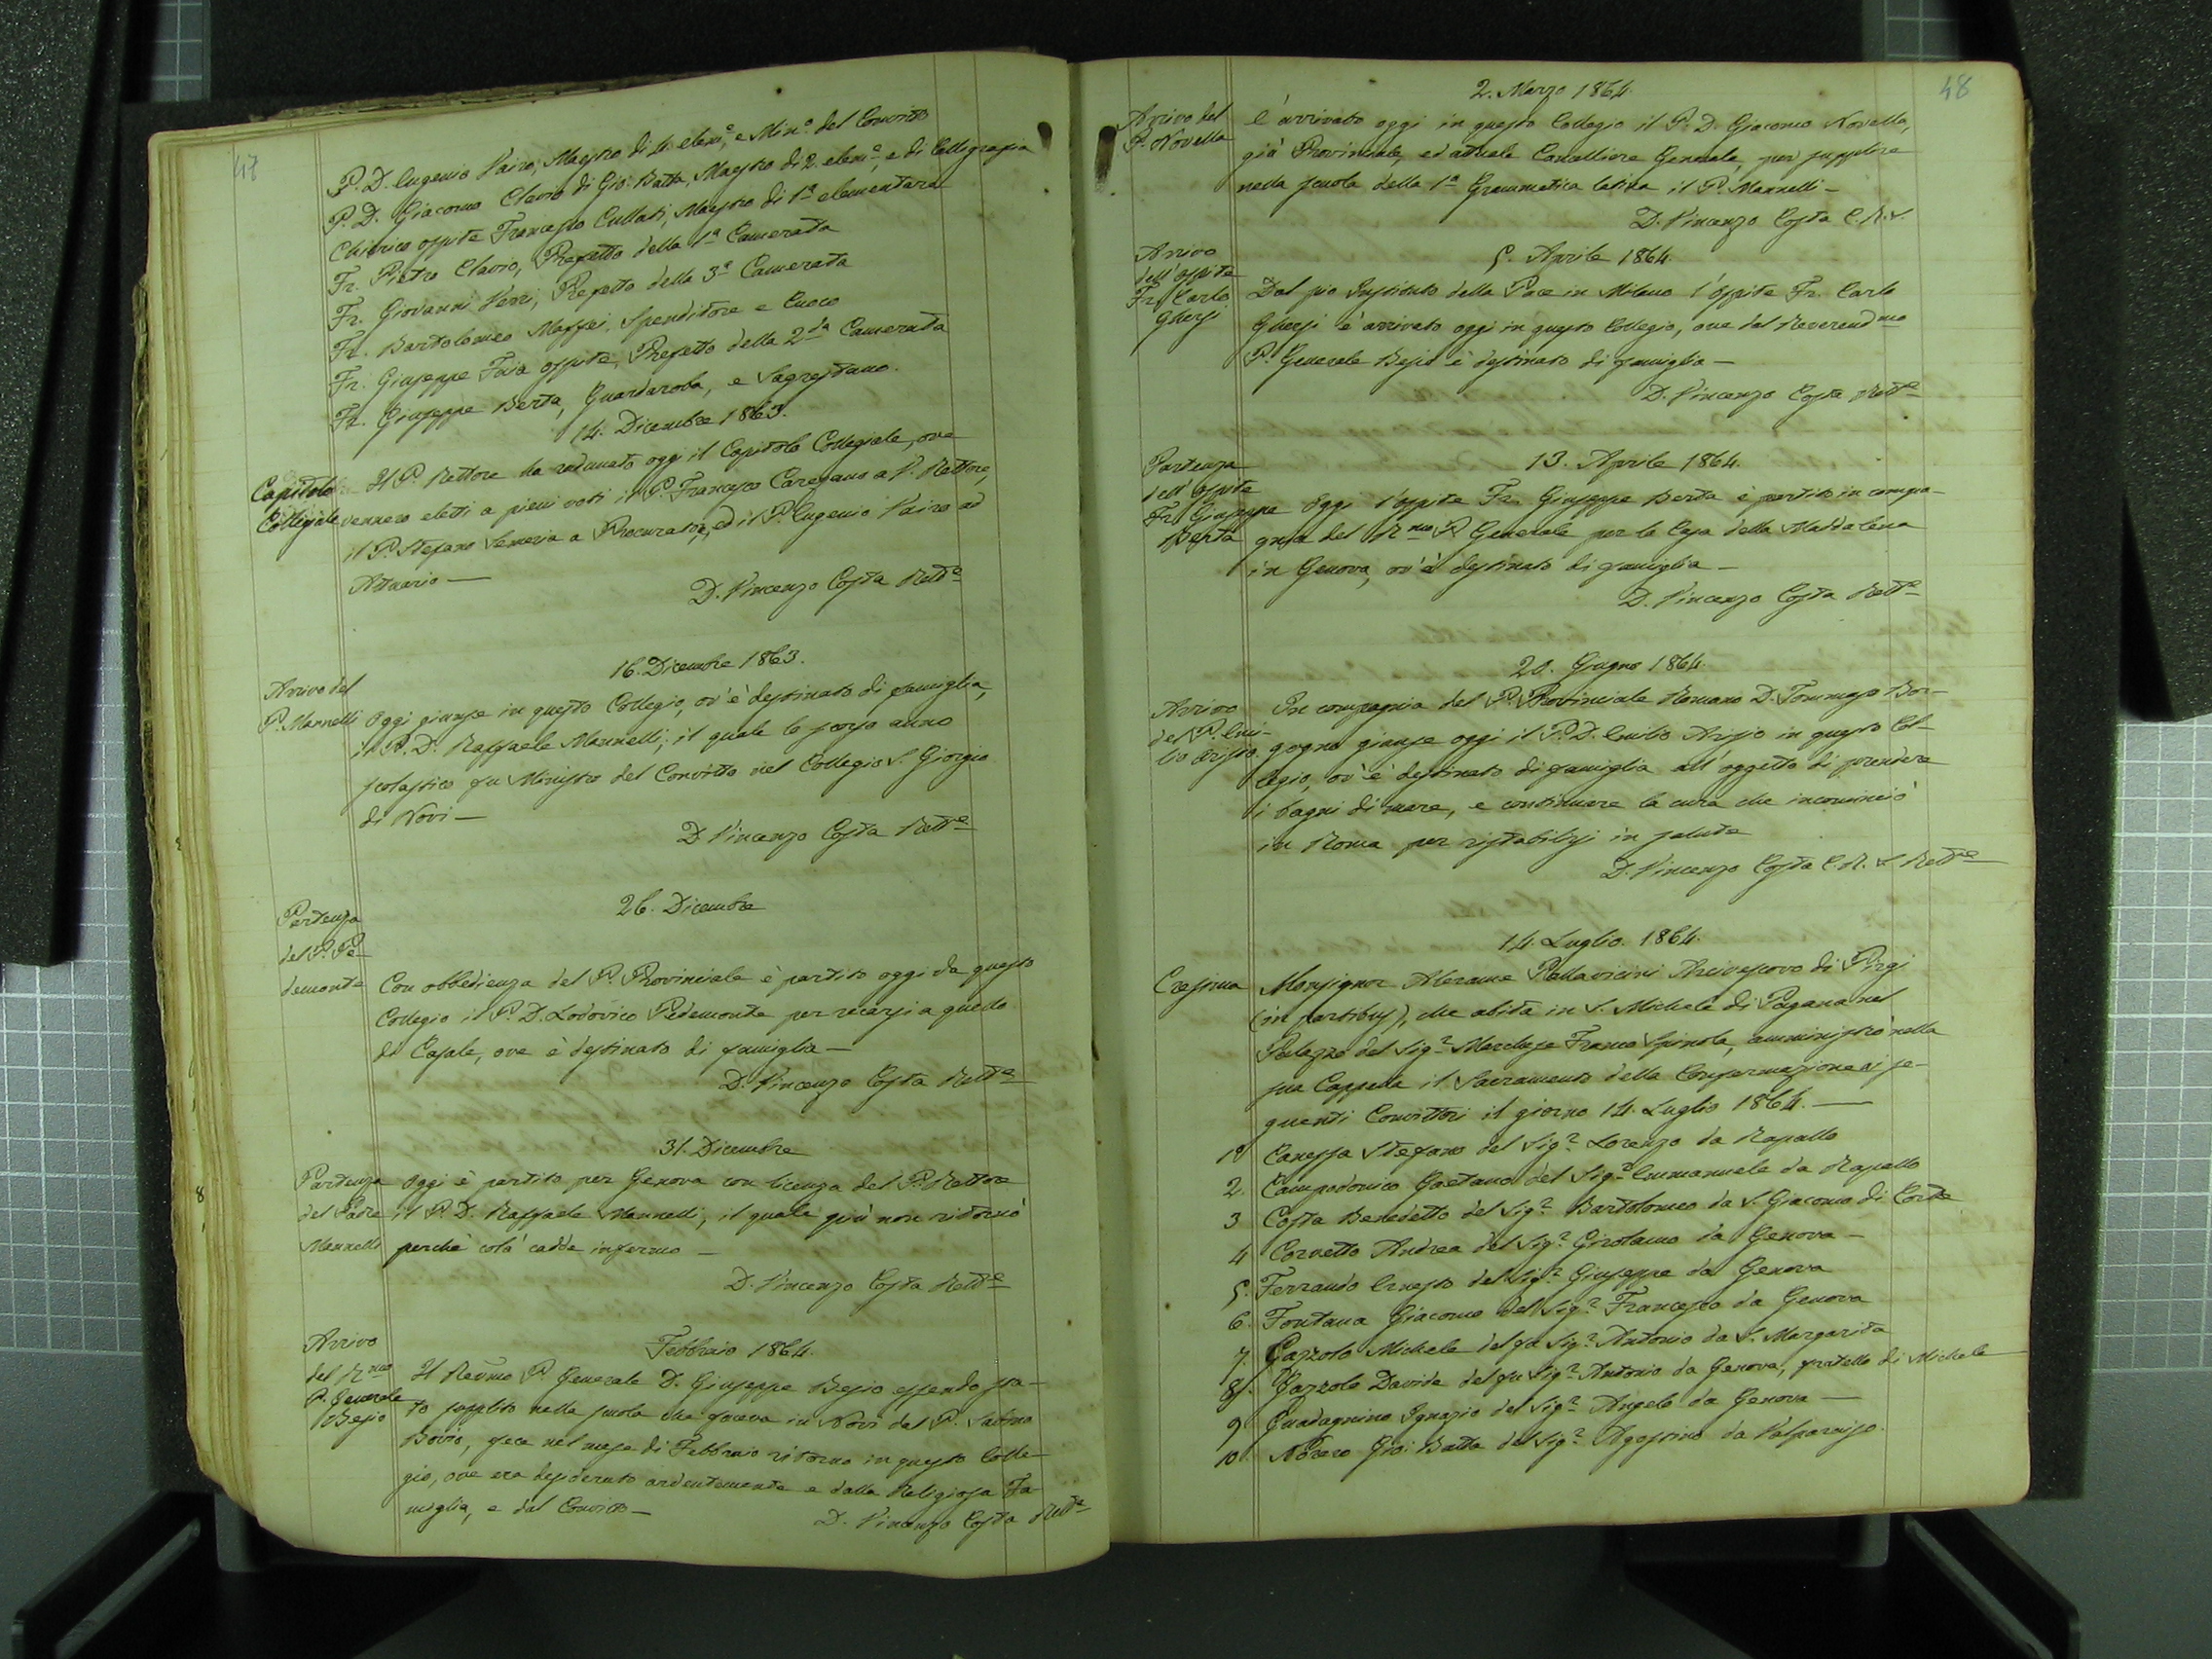 47
P. D. Eugenio Vairo, Maestro di 4. elem.e, e Min.o del Convitto
P. D. Giacomo Clavio di Gio: Batta, Maestro di 2. elem.e, e di Callegrafia
Chierico ospite Francesco Cullati, Maestro di 1a elementare
Fr. Pietro Clavio, Prefetto della 1a Camerata
Fr. Giovanni Verri, Prefetto della 3a Camerata
Fr. Bartolomeo Maffei, Spenditore e Cuoco
Fr. Giuseppe Faia ospite, Prefetto della 2da Camerata
Fr. Giuseppe Berta, Guardaroba, e Sagrestano.
14. Dicembre 1863.
Capitolo Il P. Rettore ha radunato oggi il Capitolo Collegiale, ove
Collegiale vennero eletti a pieni voti il P. Francesco Caregano a V. Rettore,
il P. Stefano Semeria a Procuratore, ed il P. Eugenio Vairo ad
Attuario —
D. Vincenzo Costa Rett.e
16. Dicembre 1863.
Arrivo del
P. Mannelli Oggi giunse in questo Collegio, ov'è destinato di famiglia,
il P. D. Raffaele Mannelli, il quale lo scorso anno
scolastico fu Ministro del Convitto nel Collegio S. Giorgio
di Novi —
D. Vincenzo Costa Rett.e
26. Dicembre
Partenza
del P. Pe-
demonte Con obbedienza del P. Provinciale è partito oggi da questo
Collegio il P. D. Lodovico Pedemonte per recarsi a quello
di Casale, ove è destinato di famiglia —
D. Vincenzo Costa Rett.e
31. Dicembre
Partenza Oggi è partito per Genova con licenza del P. Rettore
del Padre il P. D. Raffaele Mannelli, il quale più non ritornò
Mannelli perchè colà cadde infermo —
D. Vincenzo Costa Rett.e
Arrivo
Febbraio 1864.
del R.mo Il Revmo P. Generale D. Giuseppe Besio essendo sta-
P. Generale
Besio to supplito nella scuola che faceva in Novi dal P. Savino
Bovio, fece nel mese di Febbraio ritorno in questo Colle-
gio, ove era desiderato ardentemente e dalla Religiosa Fa-
miglia, e dal Convitto —
D. Vincenzo Costa Rett.e
48
2. Marzo 1864.
Arrivo del È arrivato oggi in questo Collegio il P. D. Giacomo Novella,
P. Novella già Provinciale, ed attuale Cancelliere Generale, per supplire
nella scuola della 1a Grammatica latina il P. Mannelli —
D. Vincenzo Costa C.R.S.
Arrivo
5. Aprile 1864.
dell'ospite
Fr. Carlo Dal pio Instituto della Pace in Milano l'ospite Fr. Carlo
Ghersi Ghersi è arrivato oggi in questo Collegio, ove dal Reverendmo
P. Generale Besio è destinato di famiglia —
D. Vincenzo Costa Rett.e
Partenza
13. Aprile 1864.
dell'ospite
Fr. Giuseppe Oggi l'ospite Fr. Giuseppe Berta è partito in compa-
Berta gnia del R.mo P. Generale per la Casa della Maddalena
in Genova, ov'è destinato di famiglia —
D. Vincenzo Costa Rett.e
20. Giugno 1864.
Arrivo In compagnia del P. Provinciale Romano D. Tommaso Bor-
del P. Emi-
lio Arisio gogno giunse oggi il P. D. Emilio Arisio in questo Col-
legio, ov'è destinato di famiglia all'oggetto di prendere
i bagni di mare, e continuare la cura che incominciò
in Roma per ristabilirsi in salute
D. Vincenzo Costa C.R.S. Rett.e
14. Luglio. 1864.
Cresima Monsignor Alerame Pallavicini Arcivescovo di Pirgi
(in partibus), che abita in S. Michele di Pagana nel
Palazzo del Sig.r Marchese Franco Spinola, amministrò nella
sua Cappella il Sacramento della Confermazione ai se-
guenti Convittori il giorno 14. Luglio 1864. —
1o Canessa Stefano del Sig.r Lorenzo da Rapallo
2. Campodonico Gaetano del Sig.r Emmanuele da Rapallo
3 Costa Benedetto del Sig.r Bartolomeo da S. Giacomo di Corte
4 Corvetto Andrea del Sig.r Girolamo da Genova —
5. Ferrando Ernesto del Sig.r Giuseppe da Genova
6. Fontana Giacomo del Sig.r Francesco da Genova
7. Gazzolo Michele del fu Sig.r Antonio da S. Margarita
8. Gazzolo Davide del fu Sig.r Antonio da Genova, fratello di Michele
9 Guadagnino Ignazio del Sig.r Angelo da Genova —
10 Norero Gio: Batta del Sig.r Agostino da Valparaiso.